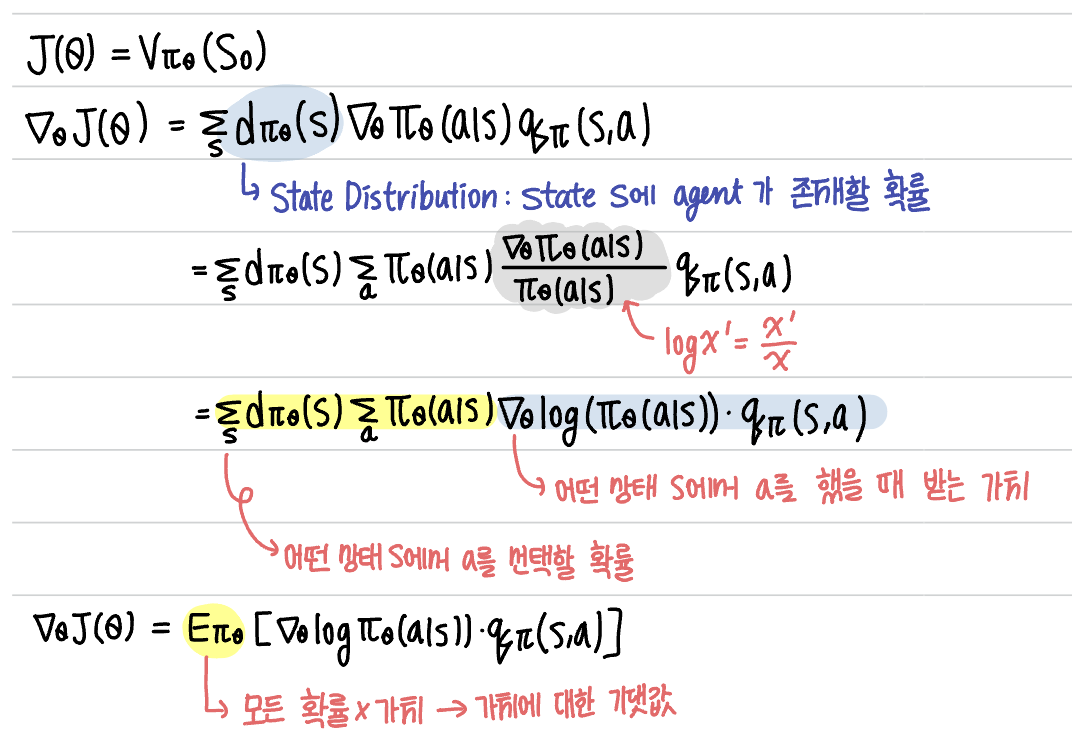 J(θ) = Vπθ(S0)
∇θJ(θ) = Σs dπθ(s) ∇θπθ(a|s) qπ(s,a)
↳ State Distribution : State S에 agent가 존재할 확률
= Σs dπθ(s) Σa πθ(a|s) ∇θπθ(a|s) / πθ(a|s) qπ(s,a)
logx' = x'/x
= Σs dπθ(s) Σa πθ(a|s) ∇θlog(πθ(a|s)) · qπ(s,a)
어떤 상태 S에서 a를 했을 때 받는 가치
어떤 상태 S에서 a를 선택할 확률
∇θJ(θ) = Eπθ [∇θlogπθ(a|s)) · qπ(s,a)]
↳ 모든 확률 x 가치 → 가치에 대한 기댓값